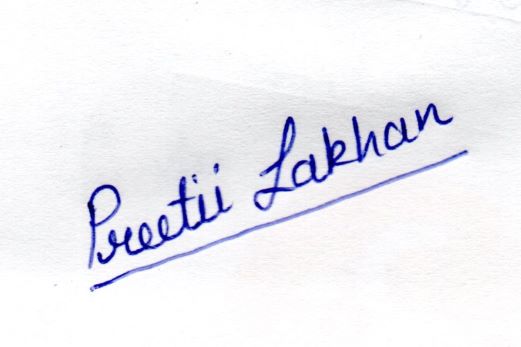 Preetii Lakhan